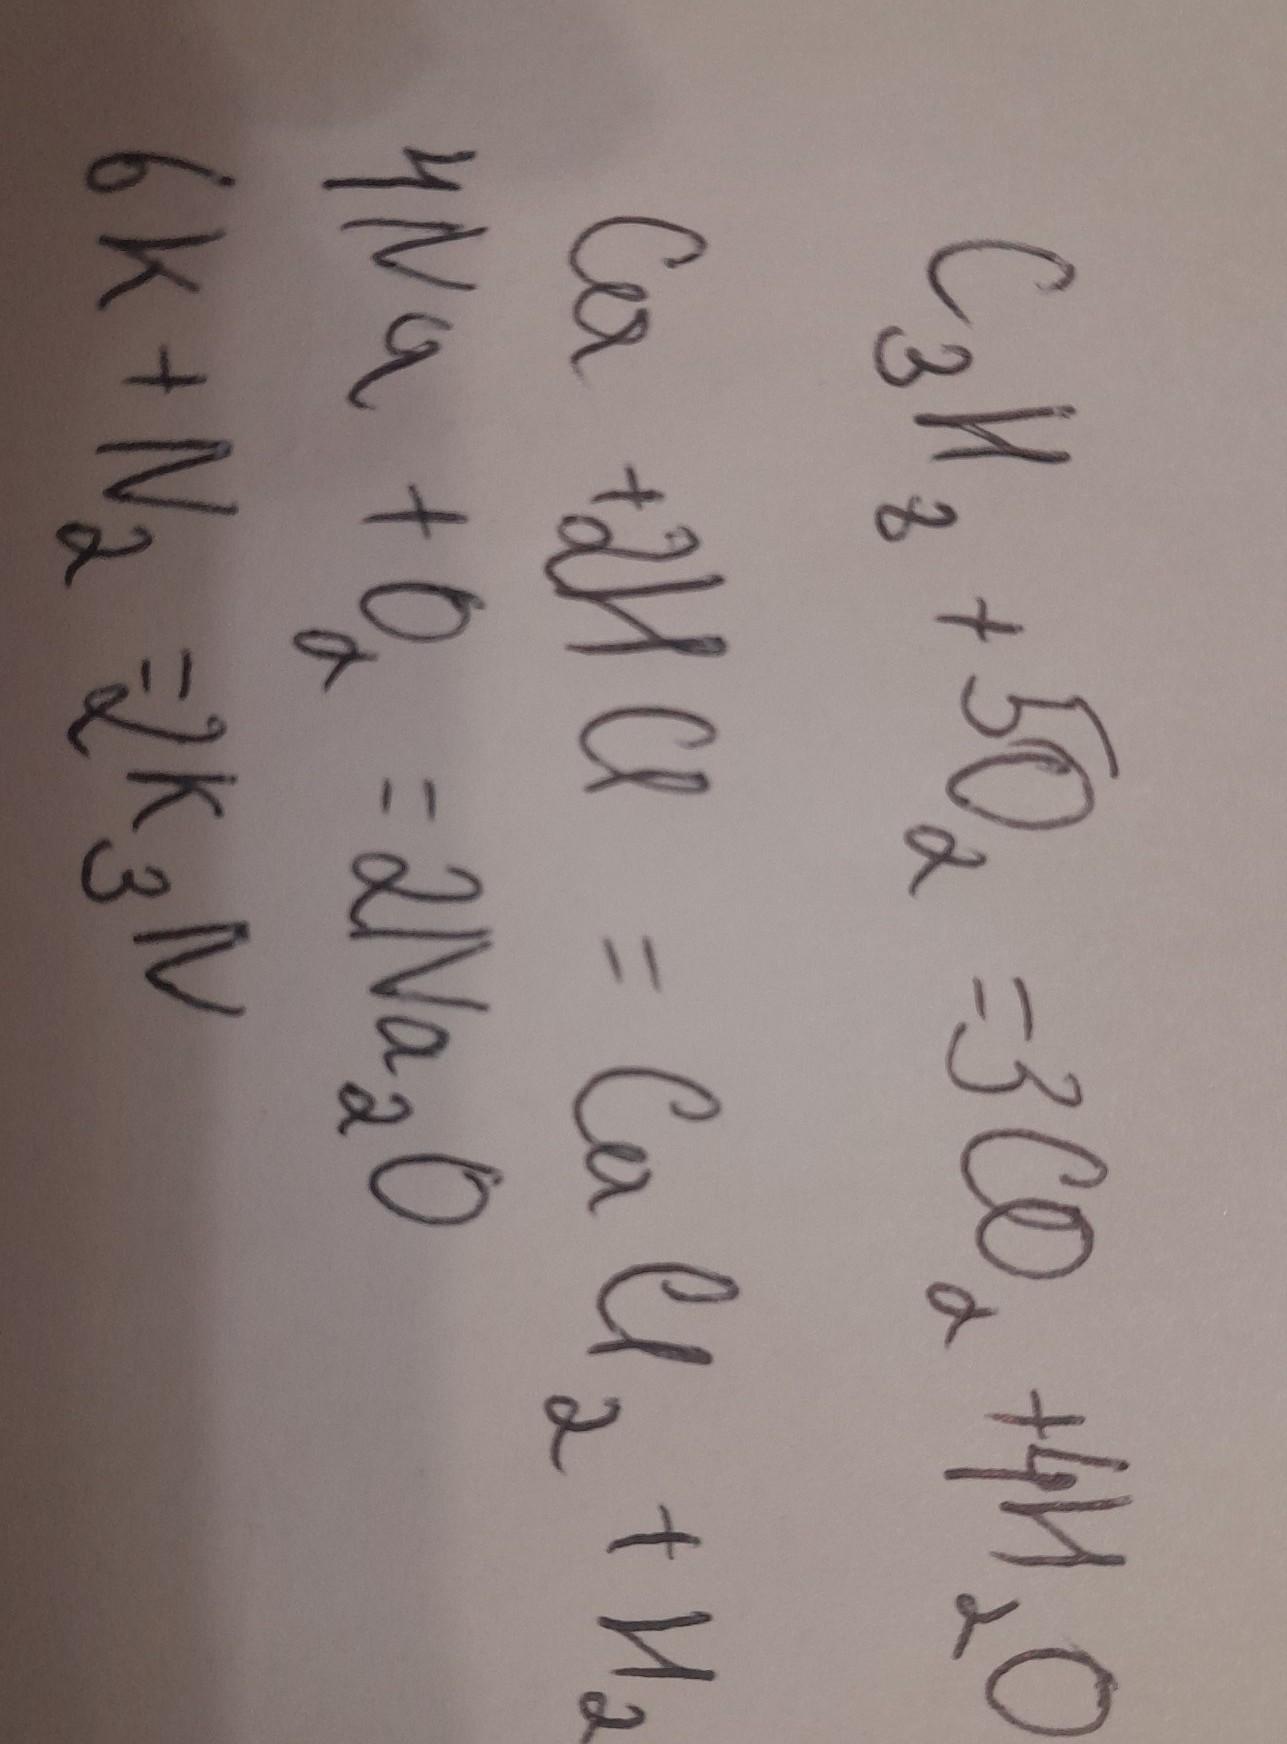 C₃H₈ + 5O₂ = 3CO₂ + 4H₂O
Ca + 2HCl = CaCl₂ + H₂
4Na + O₂ = 2Na₂O
6K + N₂ = 2K₃N